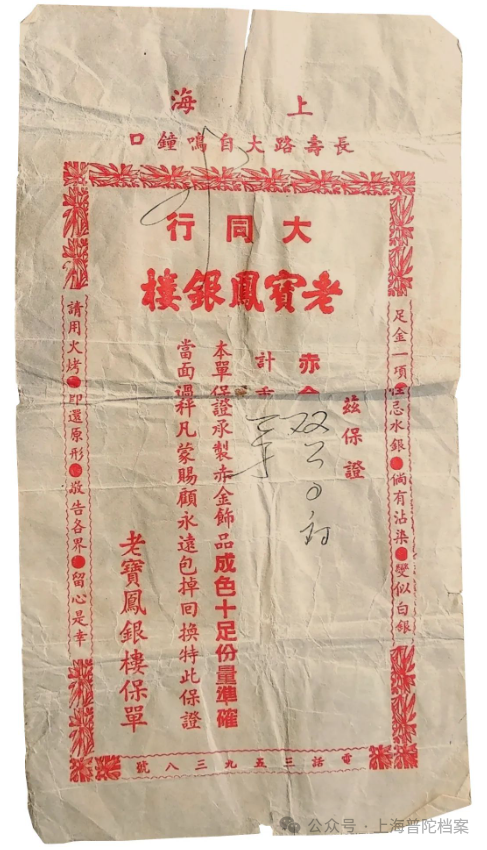 上海
長壽路大自鳴鐘口
大同行
老寶鳳銀樓
足金一項性忌水銀●倘有沾染●變似白銀
茲保證
赤金
計重
本單保證承製赤金飾品成色十足份量準確
當面過秤凡蒙賜顧永遠包掉回換特此保證
老寶鳳銀樓保單
請用火烤●即還原形●敬告各界●留心是幸
電話三五九三八號
公众号·上海普陀档案